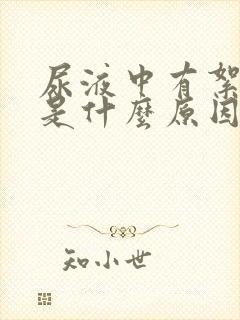 尿液中有絮
是什麼原因
知小世